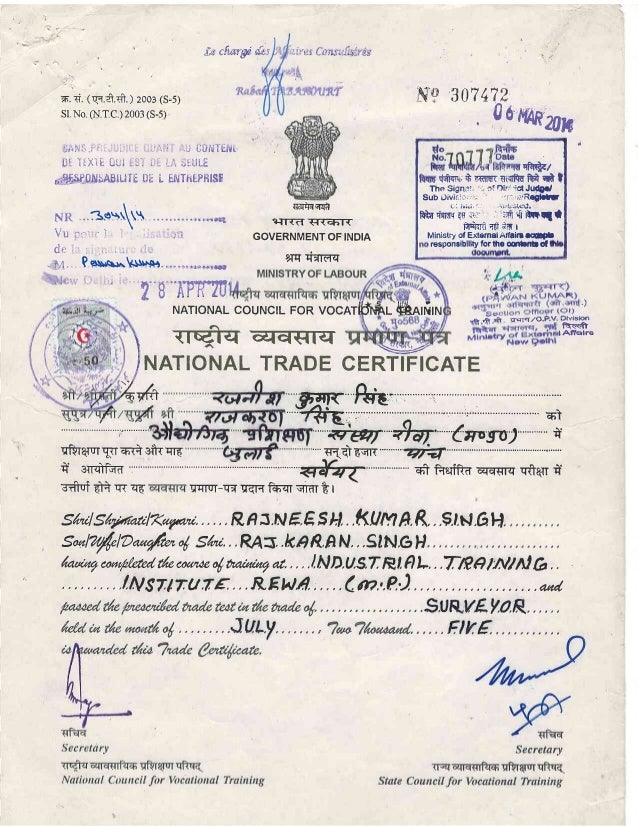 Le chargé des Affaires Consulaires
Rabah TABABOURT
क्र. सं. ( एन.टी.सी. ) 2003 (S-5)
Sl. No. (N.T.C.) 2003 (S-5)
Nº 307472
06 MAR 2014
SANS PREJUDICE QUANT AU CONTENU
DE TEXTE QUI EST DE LA SEULE
RESPONSABILITE DE L ENTREPRISE
No. 70777 दिनाँक Date
The Signature of District Judge/
Sub Divisional Registrar
जिम्मेदारी नहीं लेता ।
Ministry of External Affairs accepts
no responsibility for the contents of this
document.
NR ...3041/14
Vu pour la legalisation
de la signature de
M... Pawan Kumar
New Delhi le
28 APR 2014
सत्यमेव जयते
भारत सरकार
GOVERNMENT OF INDIA
श्रम मंत्रालय
MINISTRY OF LABOUR
राष्ट्रीय व्यावसायिक प्रशिक्षण परिषद्
NATIONAL COUNCIL FOR VOCATIONAL TRAINING
विदेश मंत्रालय
of External
मु०568
(PAWAN KUMAR)
अनुभाग अधिकारी (ओ.आई.)
Section Officer (OI)
O.P.V. Division
विदेश मंत्रालय, नई दिल्ली
Ministry of External Affairs
New Delhi
50
राष्ट्रीय व्यवसाय प्रमाण-पत्र
NATIONAL TRADE CERTIFICATE
श्री/श्रीमती/कुमारी रजनीश कुमार सिंह
सुपुत्र/पत्नी/सुपुत्री श्री राजकरण सिंह को
औद्योगिक प्रशिक्षण संस्था रीवा (म०प्र०) में
प्रशिक्षण पूरा करने और माह जुलाई सन् दो हजार पाँच
में आयोजित सर्वेयर की निर्धारित व्यवसाय परीक्षा में
उत्तीर्ण होने पर यह व्यवसाय प्रमाण-पत्र प्रदान किया जाता है।
Shri/Shrimati/Kumari......RAJNEESH KUMAR SINGH
Son/Wife/Daughter of Shri...RAJ KARAN SINGH
having completed the course of training at.....INDUSTRIAL TRAINING
INSTITUTE REWA (M.P.) and
passed the prescribed trade test in the trade of SURVEYOR
held in the month of JULY Two Thousand FIVE
is awarded this Trade Certificate.
सचिव
Secretary
राष्ट्रीय व्यावसायिक प्रशिक्षण परिषद्
National Council for Vocational Training
सचिव
Secretary
राज्य व्यावसायिक प्रशिक्षण परिषद्
State Council for Vocational Training